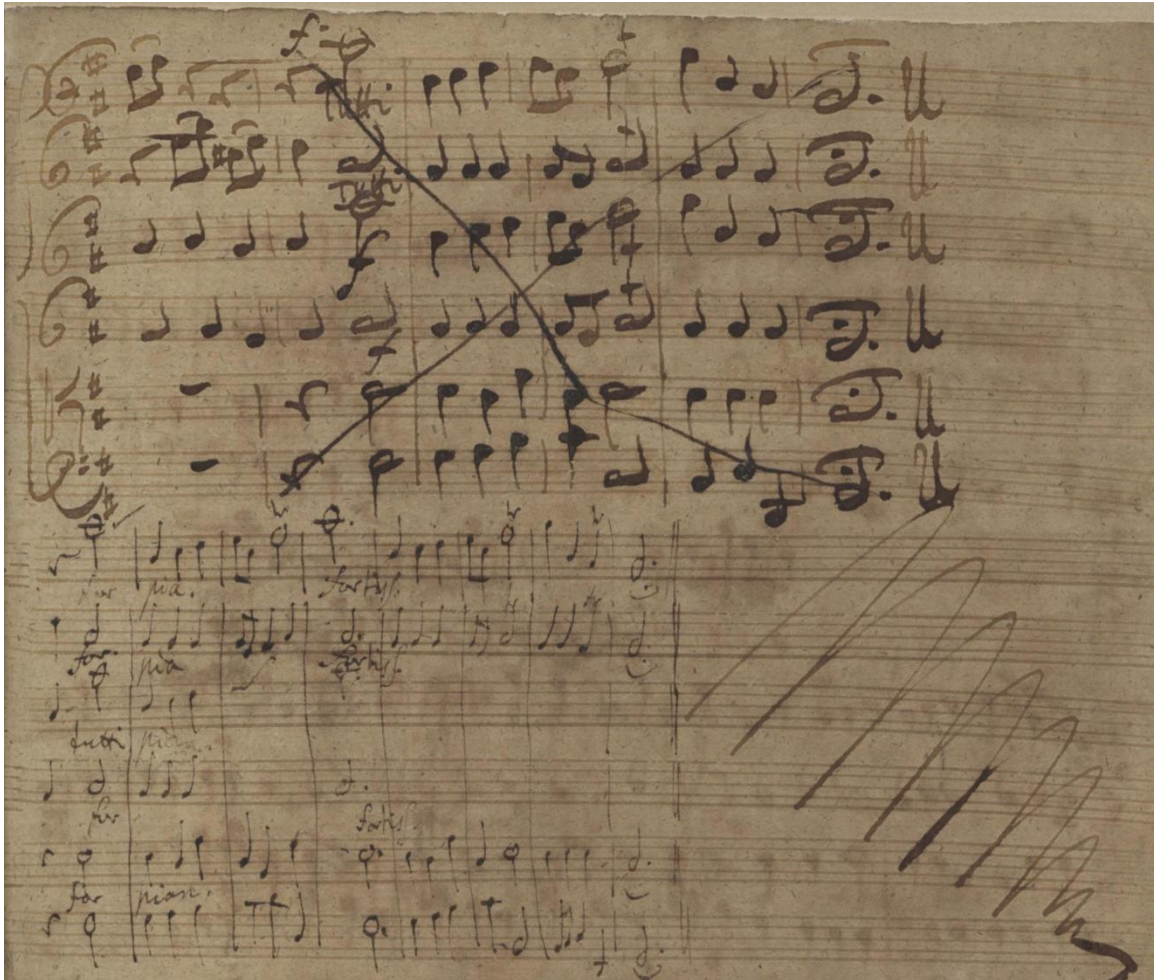 f.
Tutti.
Tutti.
f
f
for pia. fortiss.
for. pia fortiss.
tutti pian.
for fortiss.
for pian.